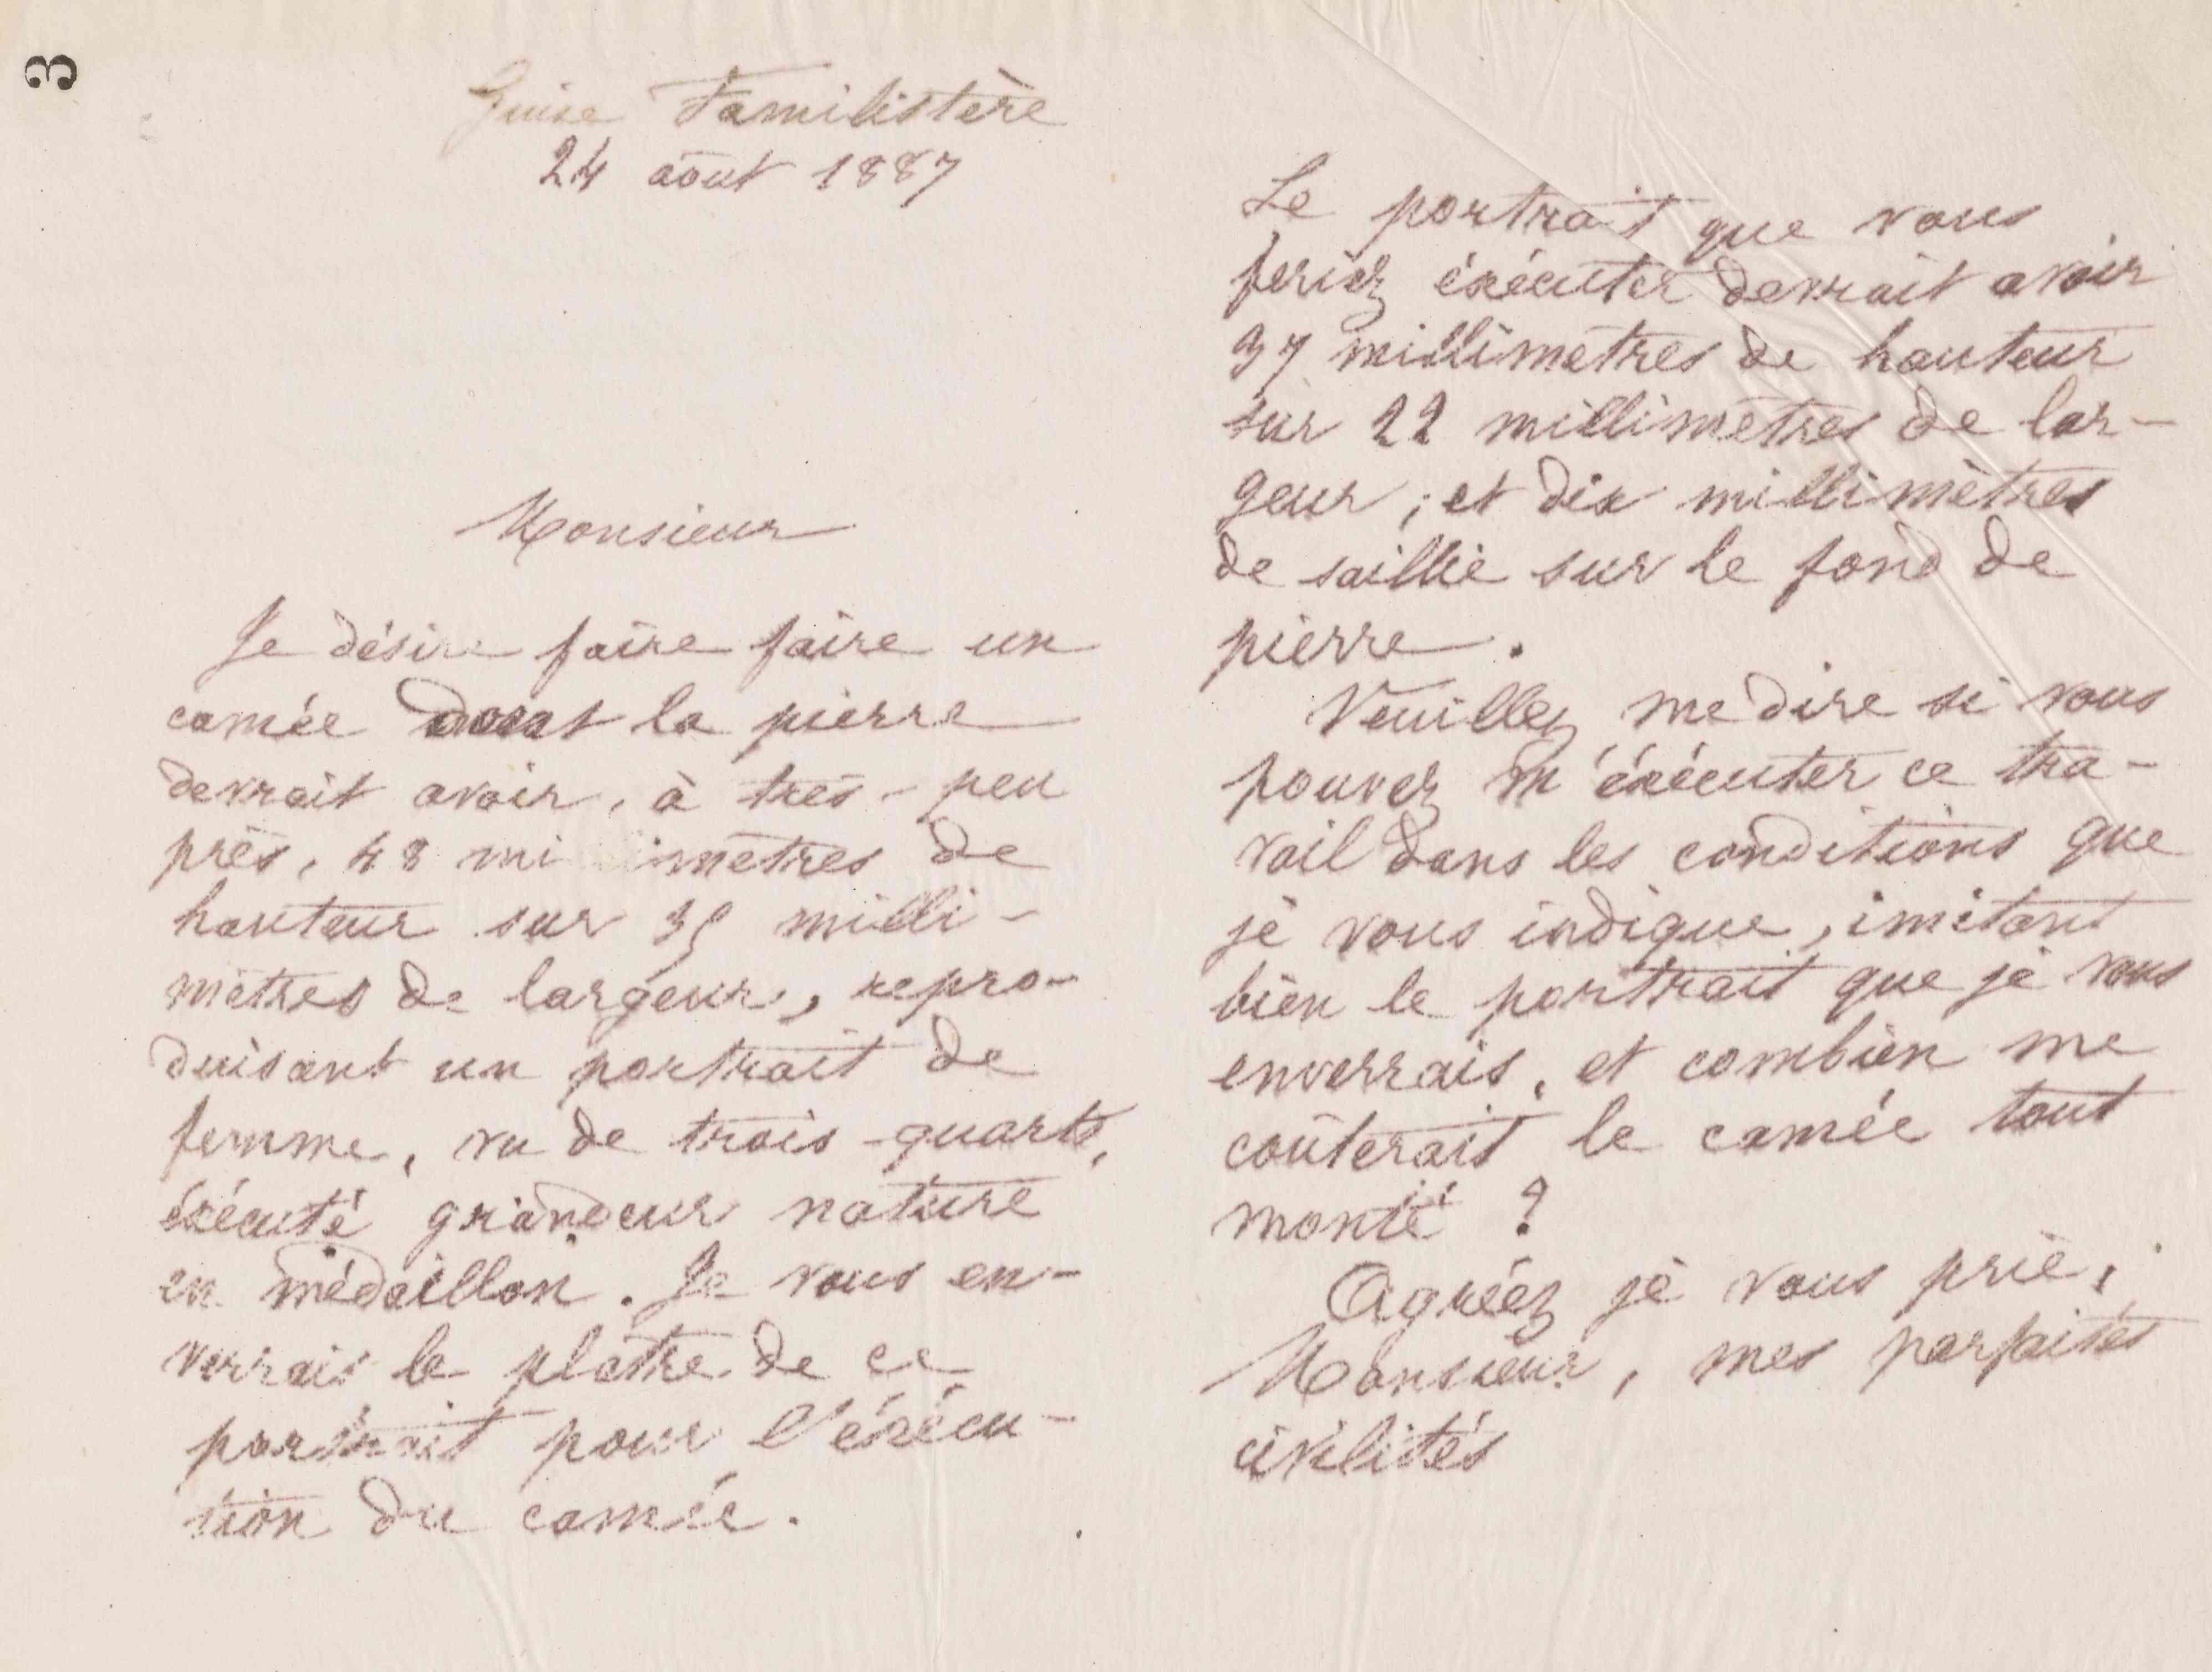 3
Guise Familistère
24 août 1887
Monsieur
Je désire faire faire un
camée dont la pierre
devrait avoir, à très-peu
près, 48 mi imètres de
hauteur sur 35 milli-
mètres de largeur, repro-
duisant un portrait de
femme, vu de trois-quarts,
éxécuté grandeur nature
en médaillon. Je vous en-
verrais le plâtre de ce
portrait pour l'éxécu-
tion du camée.
Le portrait que vous
feriez éxécuter devrait avoir
37 millimètres de hauteur
sur 22 millimètres de lar-
geur ; et dix millimètres
de saillie sur le fond de
pierre.
Veuillez me dire si vous
pouvez m'éxécuter ce tra-
vail dans les conditions que
je vous indique, imitant
bien le portrait que je vous
enverrais, et combien me
coûterait le camée tout
monté ?
Agréez je vous prie,
Monsieur, mes parfaites
civilités